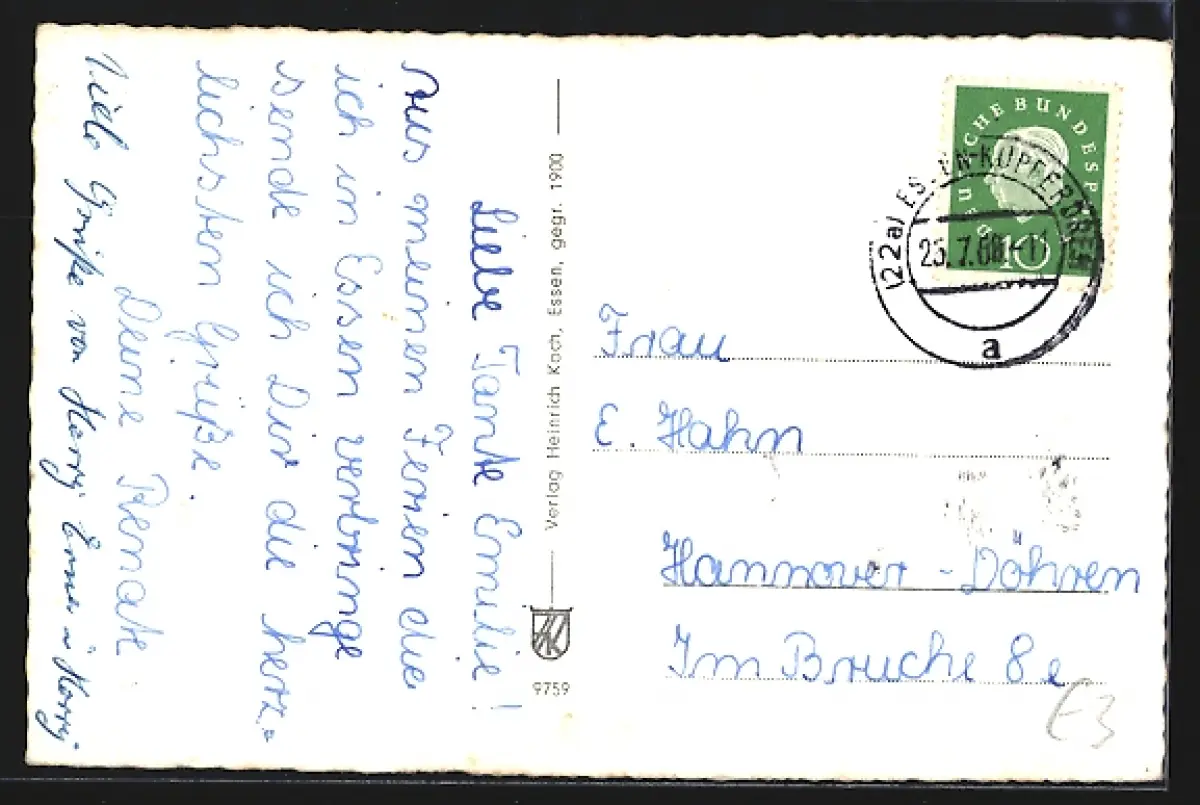 Liebe Tante Emilie!
Aus meinen Ferien die
ich in Essen verbringe
sende ich Dir die herz=
lichsten Grüße.
Deine Renate
Viele Grüße von Harry, u. Harry
Verlag Heinrich Koch, Essen, gegr. 1900
9759
DEUTSCHE BUNDESPOST
10
(22a) ESSEN-KUPFERDREH
a
Frau
E. Hahn
Hannover - Döhren
Im Bruche 8e
E3